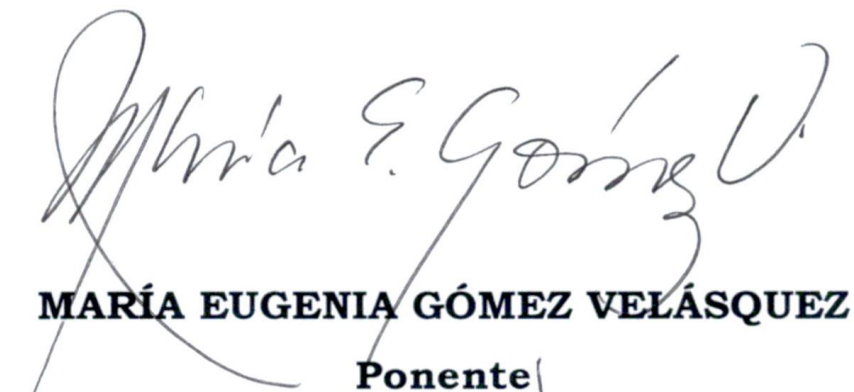 María E. Gómez V.
MARÍA EUGENIA GÓMEZ VELÁSQUEZ
Ponente